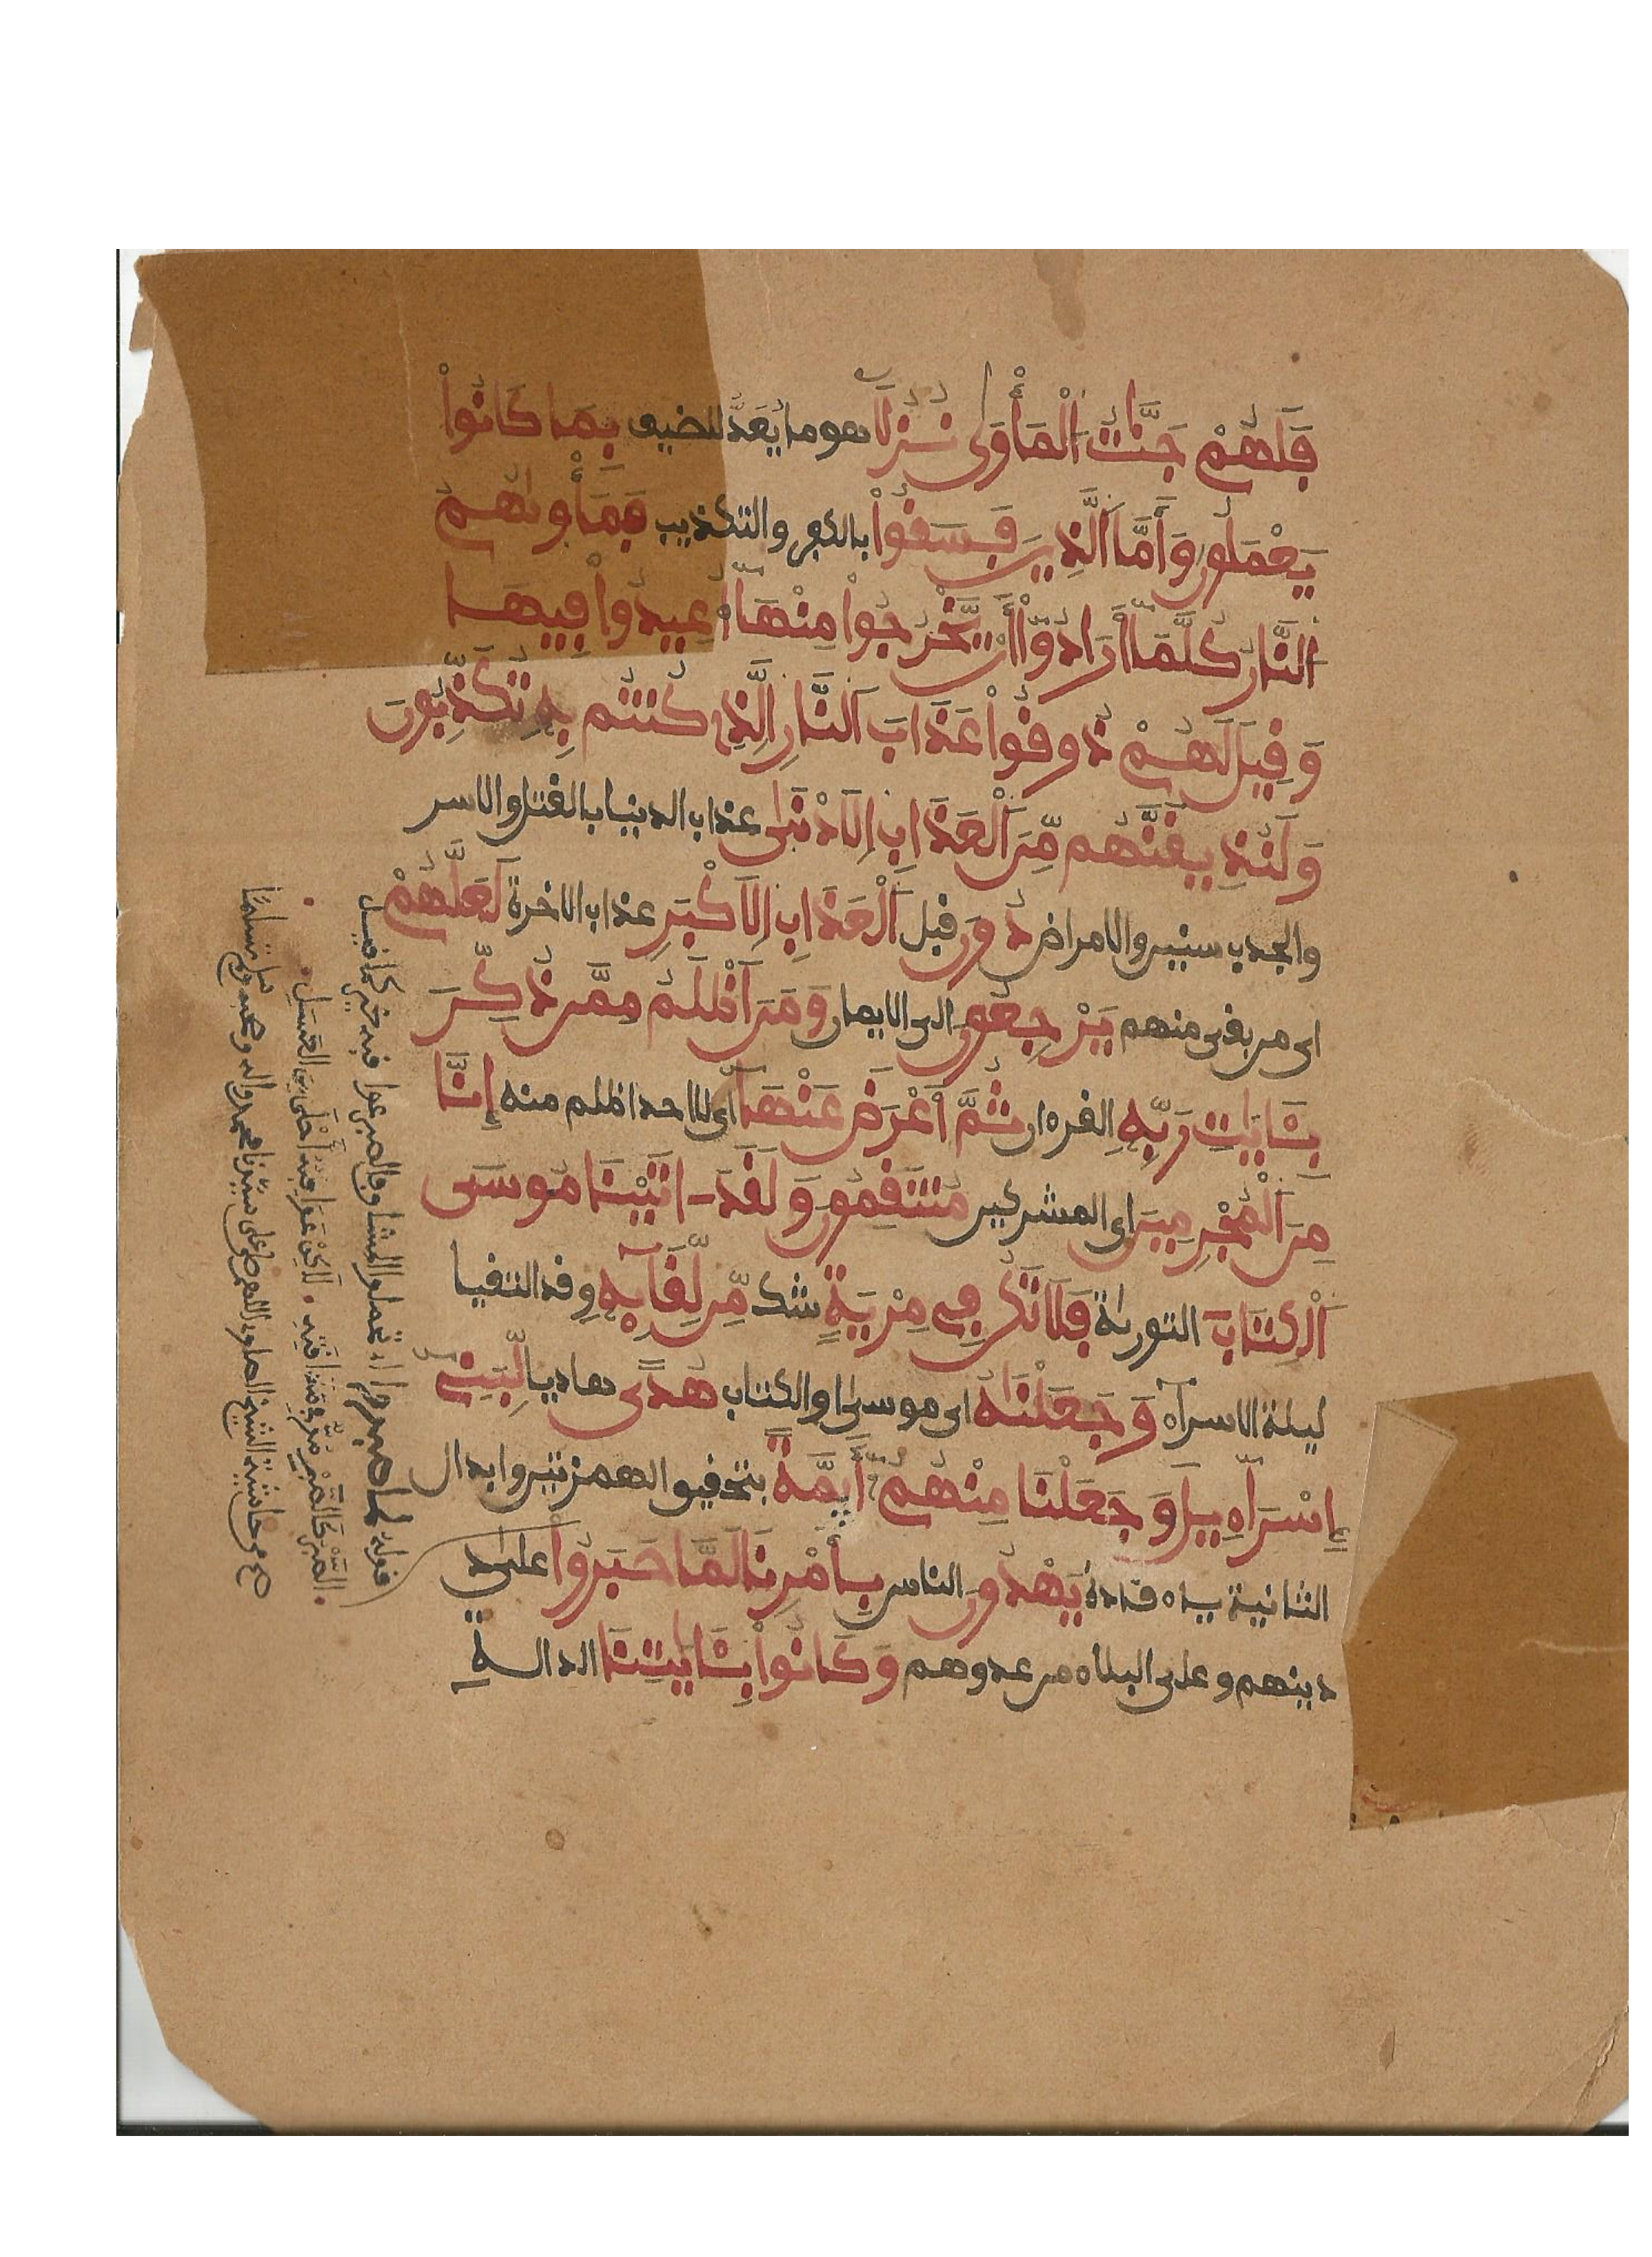 فَلَهُمْ جَنَّٰتُ اَلْمَأْوَىٰ نُزُلًا هو ما يُعَدُّ للضيف بِمَا كَانُواْ
يَعْمَلُونَ وَأَمَّا اَلَّذِينَ فَسَقُواْ بالكفر والتكذيب فَمَأْوٮٰهُمُ
اُلنَّارُ كُلَّمَا أَرَادُوٓاْ أَنْ يَّخْرُجُواْ مِنْهَآ أُعِيدُواْ فِيهَا
وَقِيلَ لَهُمْ ذُوقُواْ عَذَابَ اَلنَّارِ اِلَّذِى كُنتُم بِهِۦ تُكَذِّبُونَ
وَلَنُذِيقَنَّهُم مِّنَ اَلْعَذَابِ اِلَادْنَىٰ عذاب الدنيا بالقتل والاسر
والجدب سنين والامراض دُونَ قبل اَلْعَذَابِ اِلَاكْبَرِ عذاب الاخرة لَعَلَّهُمْ
اى من بقى منهم يَرْجِعُونَ الى الايمان وَمَنَ اَظْلَمُ مِمَّن ذُكِّرَ
بِـَٔايَٰتِ رَبِّهِۦ القرءان ثُمَّ أَعْرَضَ عَنْهَآ اى لا احد اظلم منه إِنَّا
مِنَ اَلْمُجْرِمِينَ اى المشركين مُنتَقِمُونَ وَلَقَدَ ـاتَيْنَا مُوسَى
اَلْكِتَٰبَ التورىٰة فَلَا تَكُن فِى مِرْيَةٍ شك مِّن لِّقَآئِهِۦ وقد التقيا
ليلة الاسراء وَجَعَلْنَٰهُ اى موسىٰ او الكتاب هُدًى هاديا لِّبَنِىٓ
إِسْرَآءِيلَ وَجَعَلْنَا مِنْهُمُۥٓ أَيِمَّةً بتحقيق الهمزتين وابدال
الثانية ياء قادة يَهْدُونَ الناس بِأَمْرِنَا لَمَّا صَبَرُواْ على
دينهم وعلى البلاء من عدوهم وَكَانُواْ بِـَٔايَٰتِنَا الدالة
قوله لما صبروا
الصبر كالصبر مر فى مذاقته . لكن عواقبه أحلى من العسل .
من حاشية الشيخ الصاوى اللهم صل على سيدنا محمد واله وصحبه وسلم تسليما